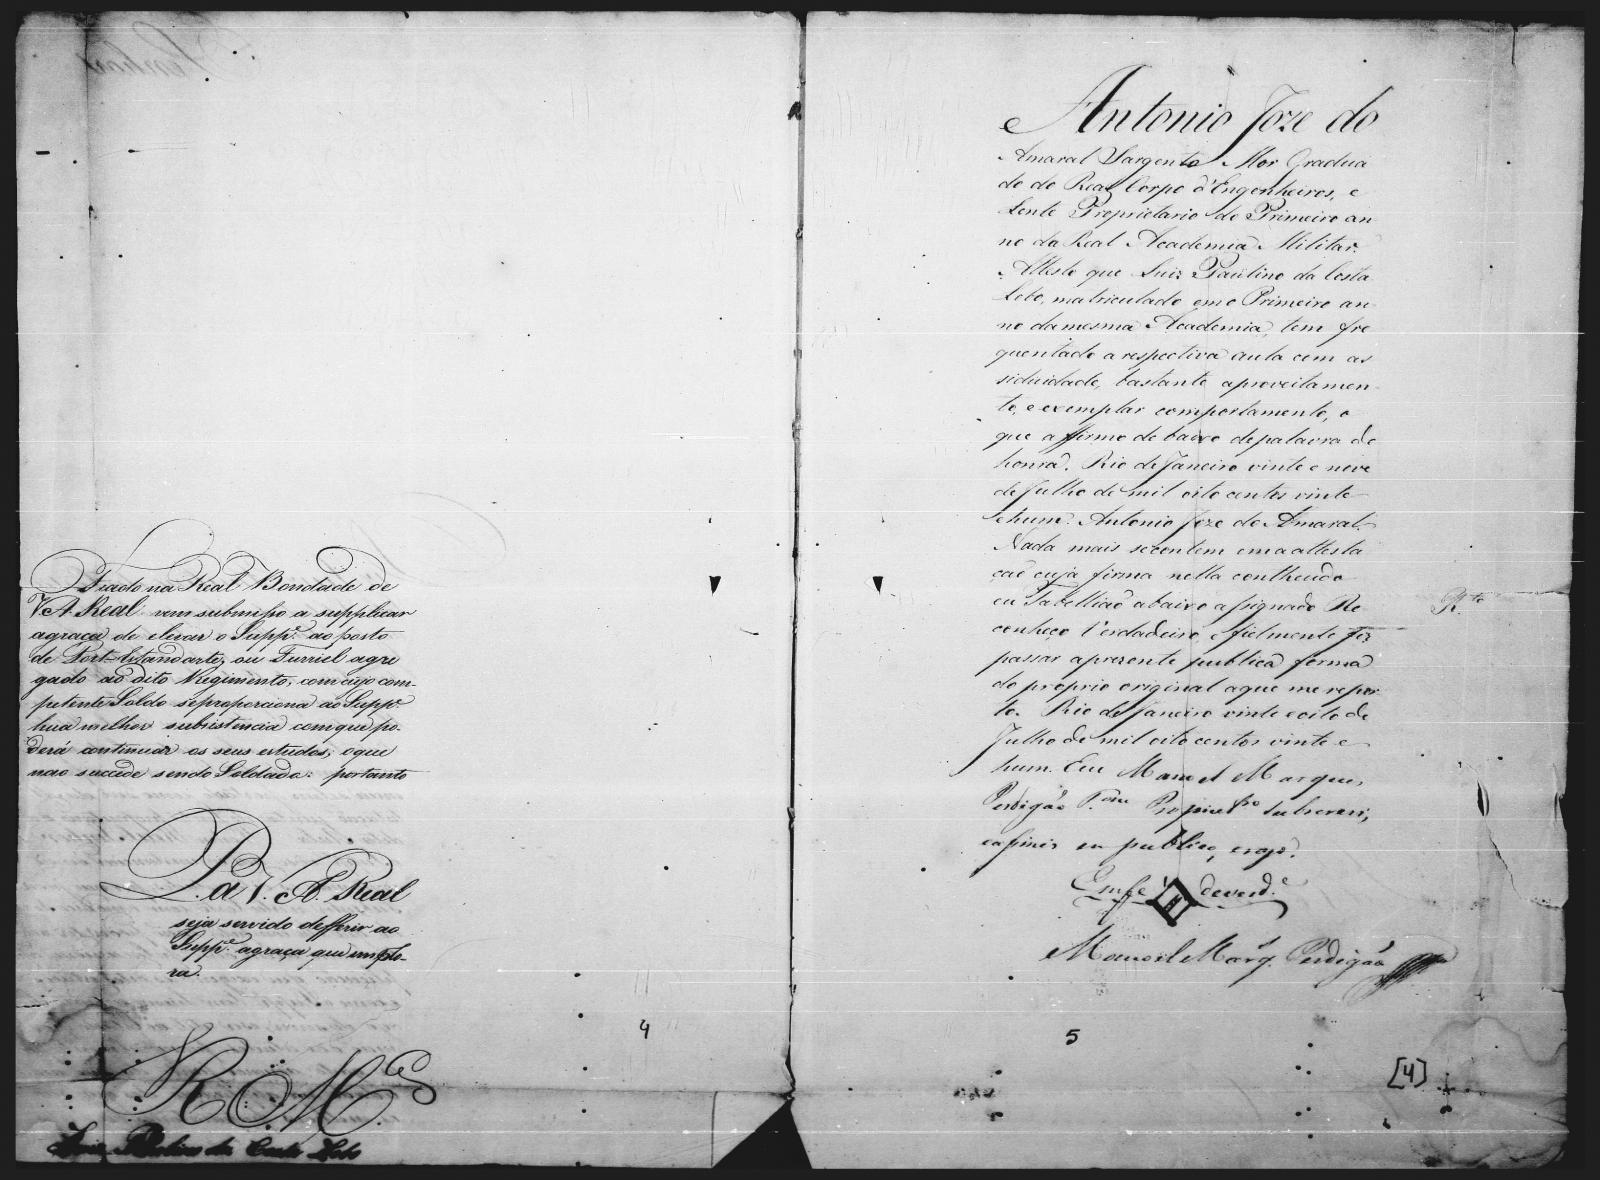 Fiado na Real Bondade de
V A Real vem submisso a supplicar
agraça de elevar o Suppe. ao posto
de Port-Estandarte, ou Furriel agre
gado ao dito Regimento, com cujo com-
petente Soldo seproporciona ao Suppe
hua melhor subsistencia comque po-
derá continuar os seus estudos; oque
nao succede sendo Soldado: portanto
P. a V. A. Real
seja servido defferir ao
Suppe. agraça que implo-
ra.
E R Mce
Luis Paulino da Costa Lobo
4
Antonio Joze do
Amaral Sargento Mor Gradua
do do Real Corpo d'Engenheiros, e
Lente Proprietario do Primeiro an
no da Real Academia Militar.
Attesto que Luis Paulino da Costa
Lobo, matriculado em o Primeiro an
no damesma Academia, tem fre
quentado a respectiva aula com as
siduidade, bastante aproveitamen
to, e exemplar comportamento, o
que affirmo de baixo depalavra de
honra. Rio de Janeiro vinte e nove
de Julho de mil oito centos vinte
ehum. Antonio Joze do Amaral.
Nada mais secontem em a attesta
caõ cuja firma nella conthendo
eu Tabelliaõ abaixo assignado Re
conheço Verdadeira, e fielmente fiz
passar aprezente publica forma
do proprio original aque me repor
to. Rio de Janeiro vinte e oito de
Julho de mil oito centos vinte e
hum. Eu Manoel Marques
Perdigão Tam subscrevi,
easignei em publico, erazo.
Emfe deverde.
Manoel Marq. Perdigão
5
[4]